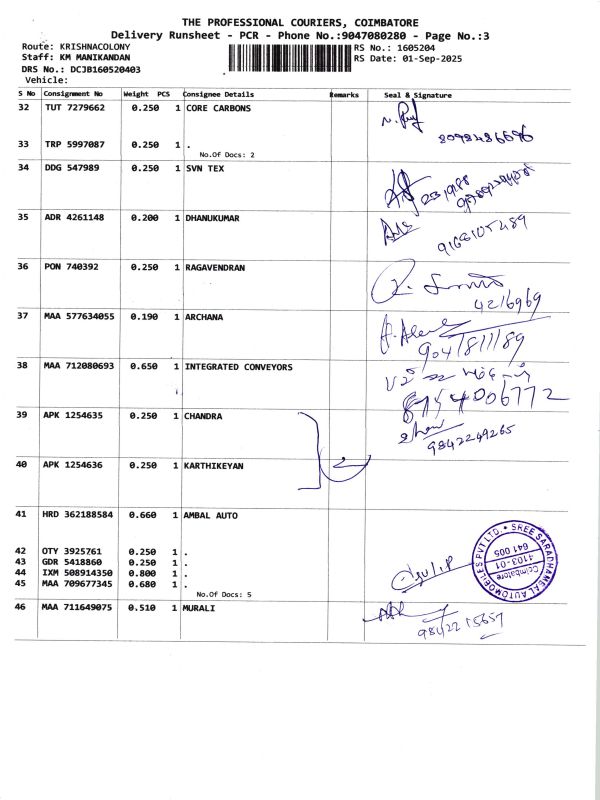 THE PROFESSIONAL COURIERS, COIMBATORE
Delivery Runsheet - PCR - Phone No.:9047080280 - Page No.:3
Route: KRISHNACOLONY RS No.: 1605204
Staff: KM MANIKANDAN RS Date: 01-Sep-2025
DRS No.: DCJB160520403
Vehicle:
S No Consignment No Weight PCS Consignee Details Remarks Seal & Signature
32 TUT 7279662 0.250 1 CORE CARBONS
8098486696
33 TRP 5997087 0.250 1 .
No.Of Docs: 2
34 DDG 547989 0.250 1 SVN TEX
35 ADR 4261148 0.200 1 DHANUKUMAR
9168105489
36 PON 740392 0.250 1 RAGAVENDRAN
4216969
37 MAA 577634055 0.190 1 ARCHANA
9047811189
38 MAA 712080693 0.650 1 INTEGRATED CONVEYORS
39 APK 1254635 0.250 1 CHANDRA
9842249265
40 APK 1254636 0.250 1 KARTHIKEYAN
41 HRD 362188584 0.660 1 AMBAL AUTO
42 OTY 3925761 0.250 1 .
43 GDR 5418860 0.250 1 .
44 IXM 508914350 0.800 1 .
45 MAA 709677345 0.680 1 .
No.Of Docs: 5
SREE SARADHAMBAL AUTOMOBILES PVT LTD.
4103-01
Coimbatore
641 005
46 MAA 711649075 0.510 1 MURALI
9842215657